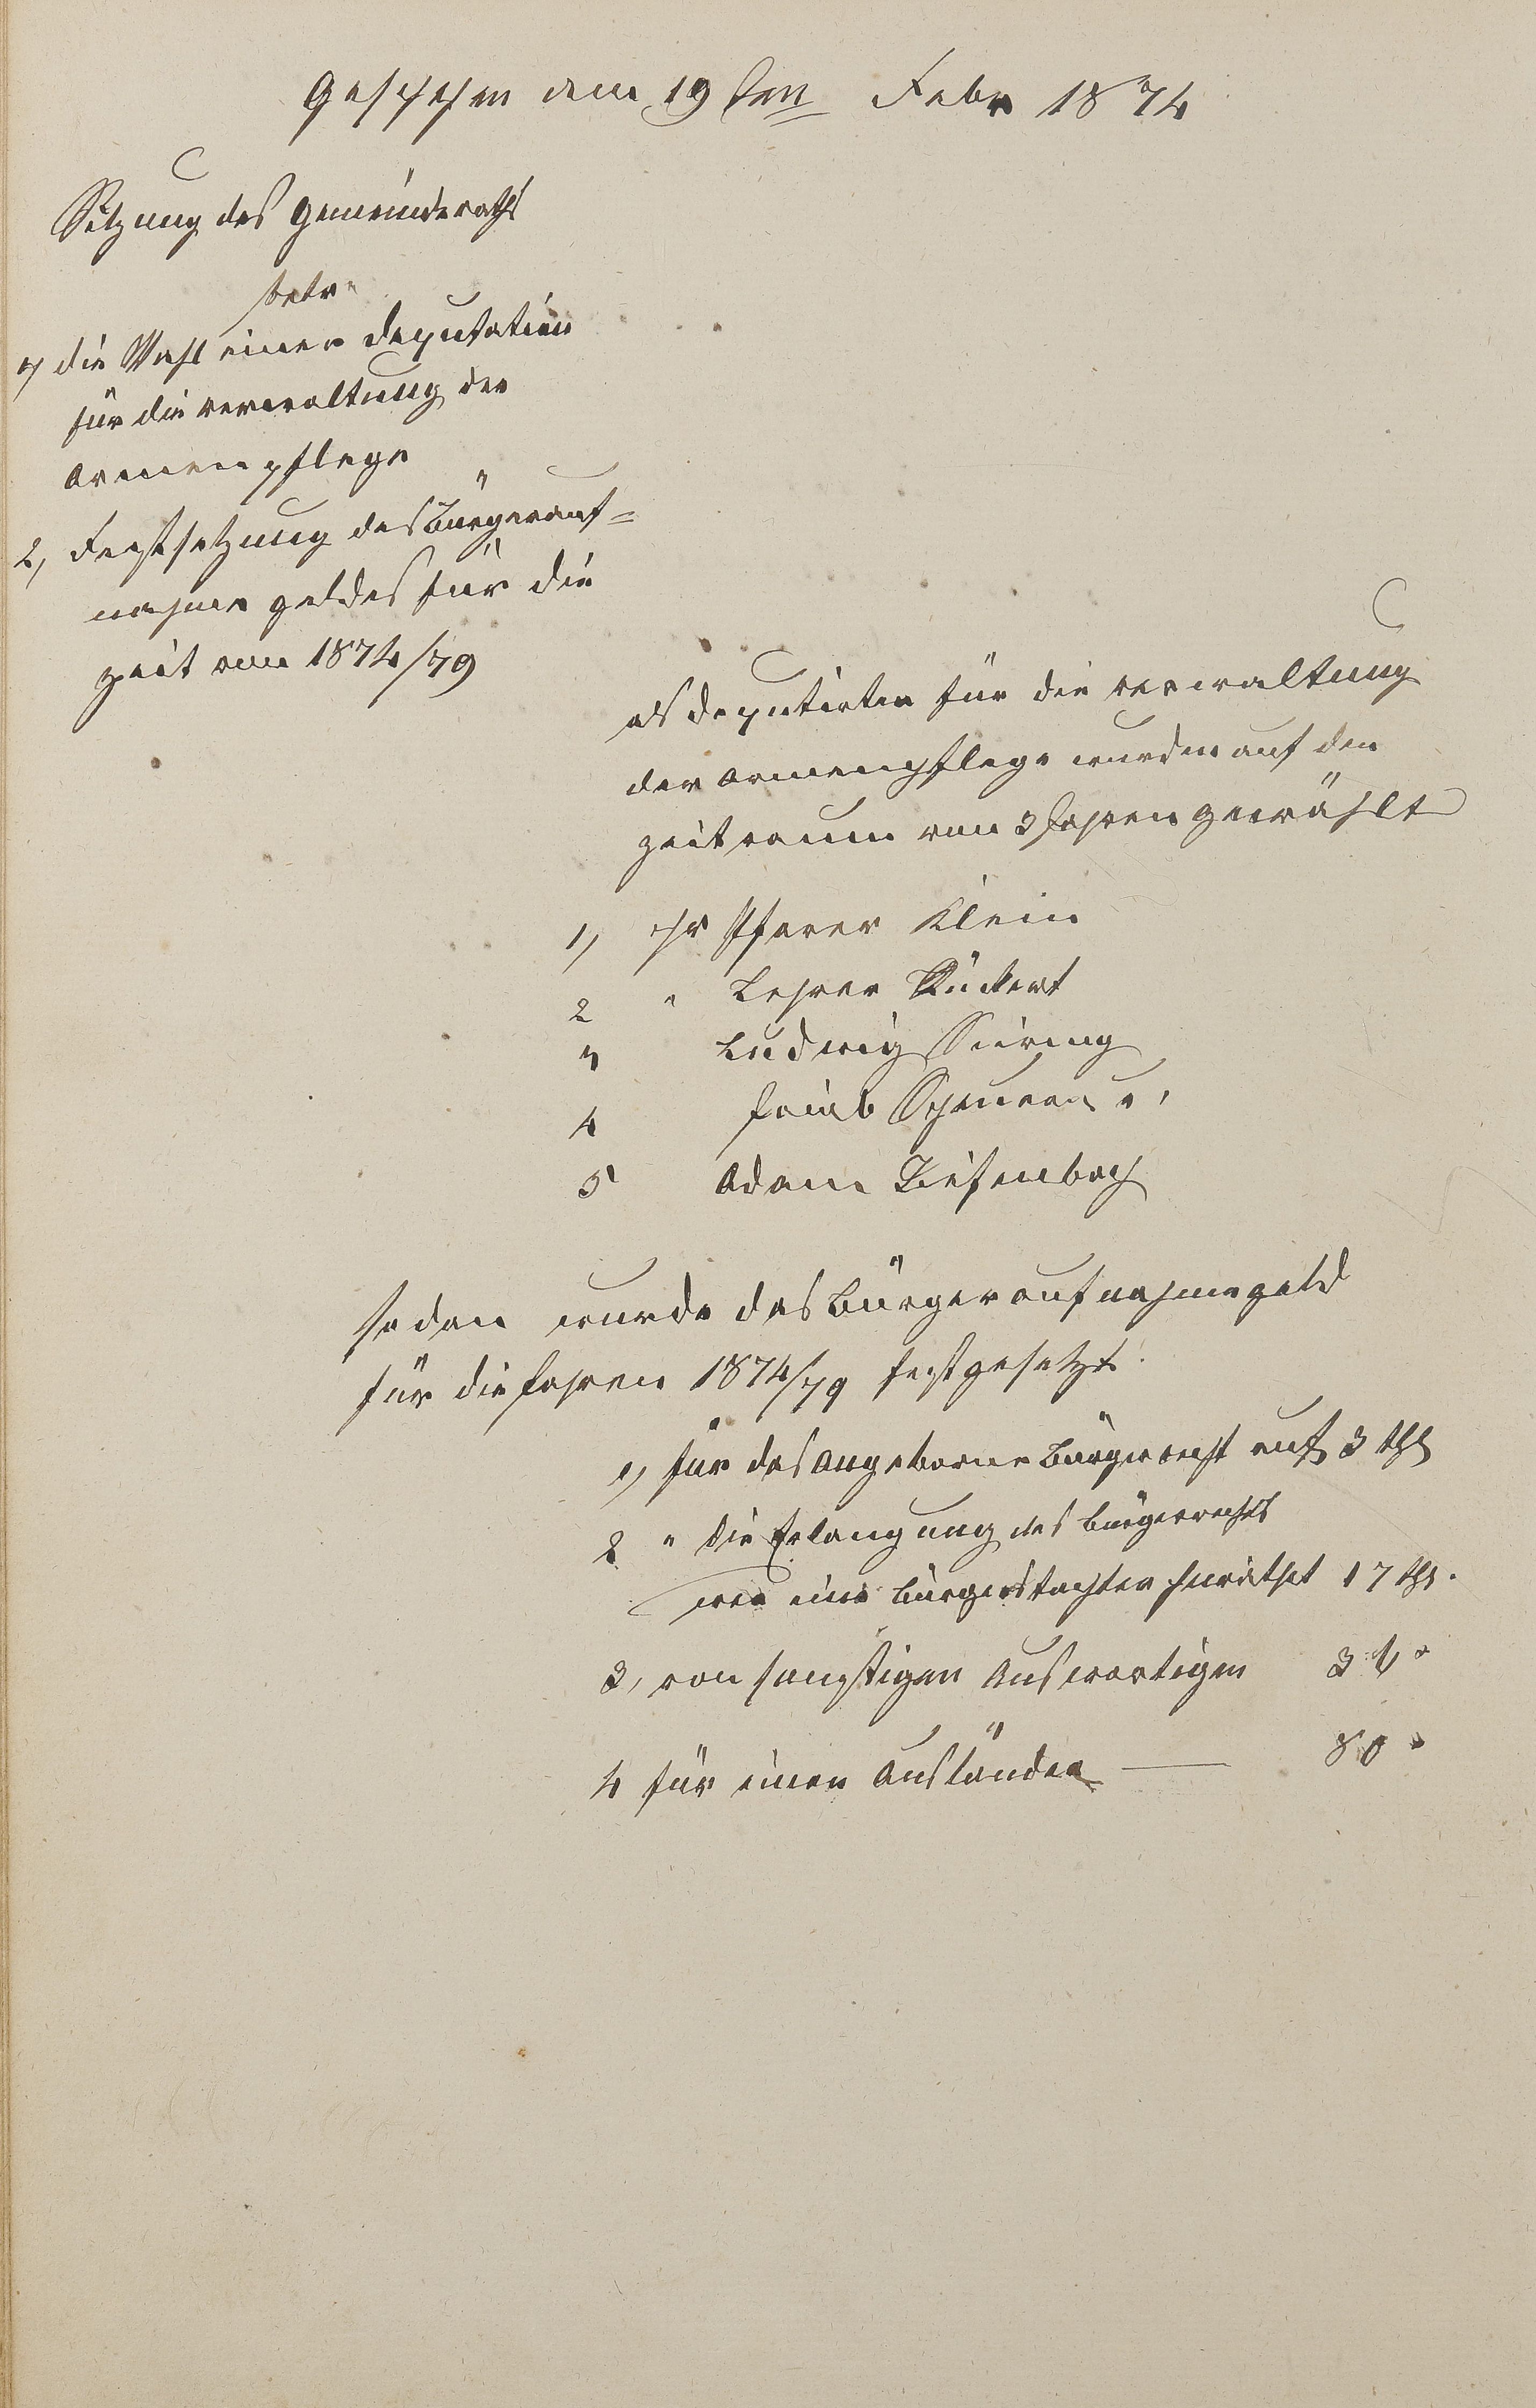 Geschehen dem 19ten Febr 1874
Sitzung des Gemeinderaths
betr.
1) die Wahl einer Deputation
für die Verwaltung der
Armenpflege
2, Festsetzung des Bürgerauf=
nahme geldes für die
Zeit von 1874/79
als Deputirten für die Verwaltung
der Armenpflege wurden auf den
Zeitraum von 3 Jahren gewählt
1, Hr Pfarer Klein
2 " Lehrer Rückert
3 Ludwig
4 Jacob
5 Adam
sodan wurde das Bürgeraufnahmegeld
für die Jahren 1874/79 festgesetzt.
1, für das Angeborne Bürgerrecht auf 3 thl
2 " die Erlangung des Bürgerrechts
wer eine Bürgerstochter heirathet 17 thl.
3, von sonstigen Auswartigen 34 "
4 für einen Ausländer — 80 "